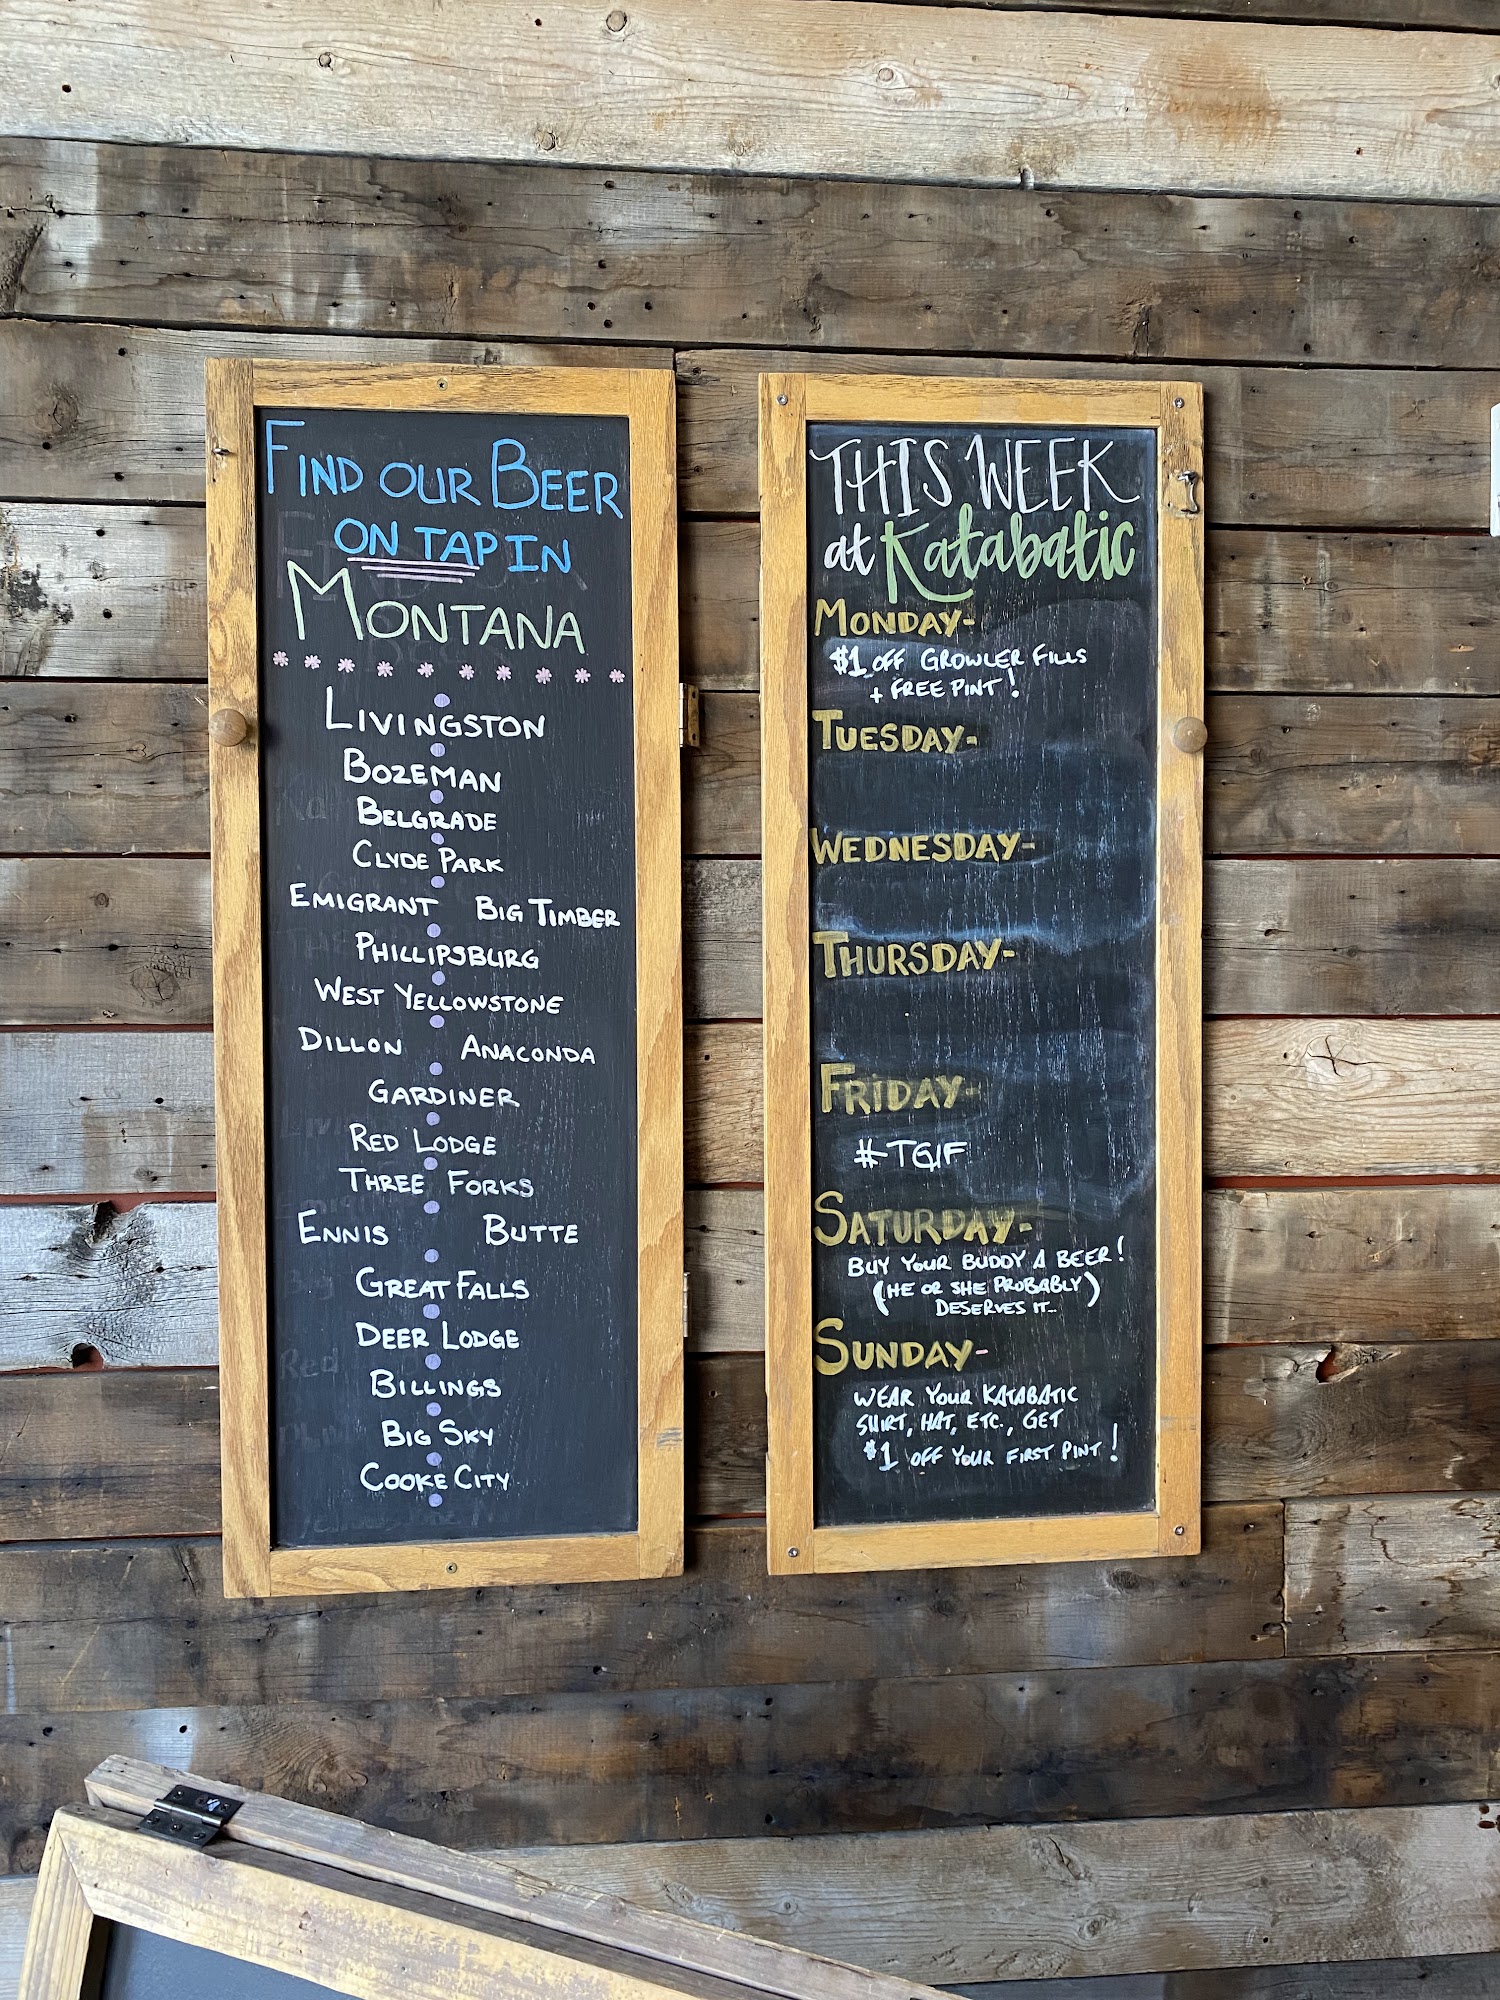 FIND OUR BEER
ON TAP IN
MONTANA
LIVINGSTON
BOZEMAN
BELGRADE
CLYDE PARK
EMIGRANT BIG TIMBER
PHILLIPSBURG
WEST YELLOWSTONE
DILLON ANACONDA
GARDINER
RED LODGE
THREE FORKS
ENNIS BUTTE
GREAT FALLS
DEER LODGE
BILLINGS
BIG SKY
COOKE CITY
THIS WEEK
at Katabatic
MONDAY-
$1 OFF GROWLER FILLS
+ FREE PINT!
TUESDAY-
WEDNESDAY-
THURSDAY-
FRIDAY-
#TGIF
SATURDAY-
BUY YOUR BUDDY A BEER!
(HE OR SHE PROBABLY)
DESERVES IT...
SUNDAY-
WEAR YOUR KATABATIC
SHIRT, HAT, ETC., GET
$1 OFF YOUR FIRST PINT!